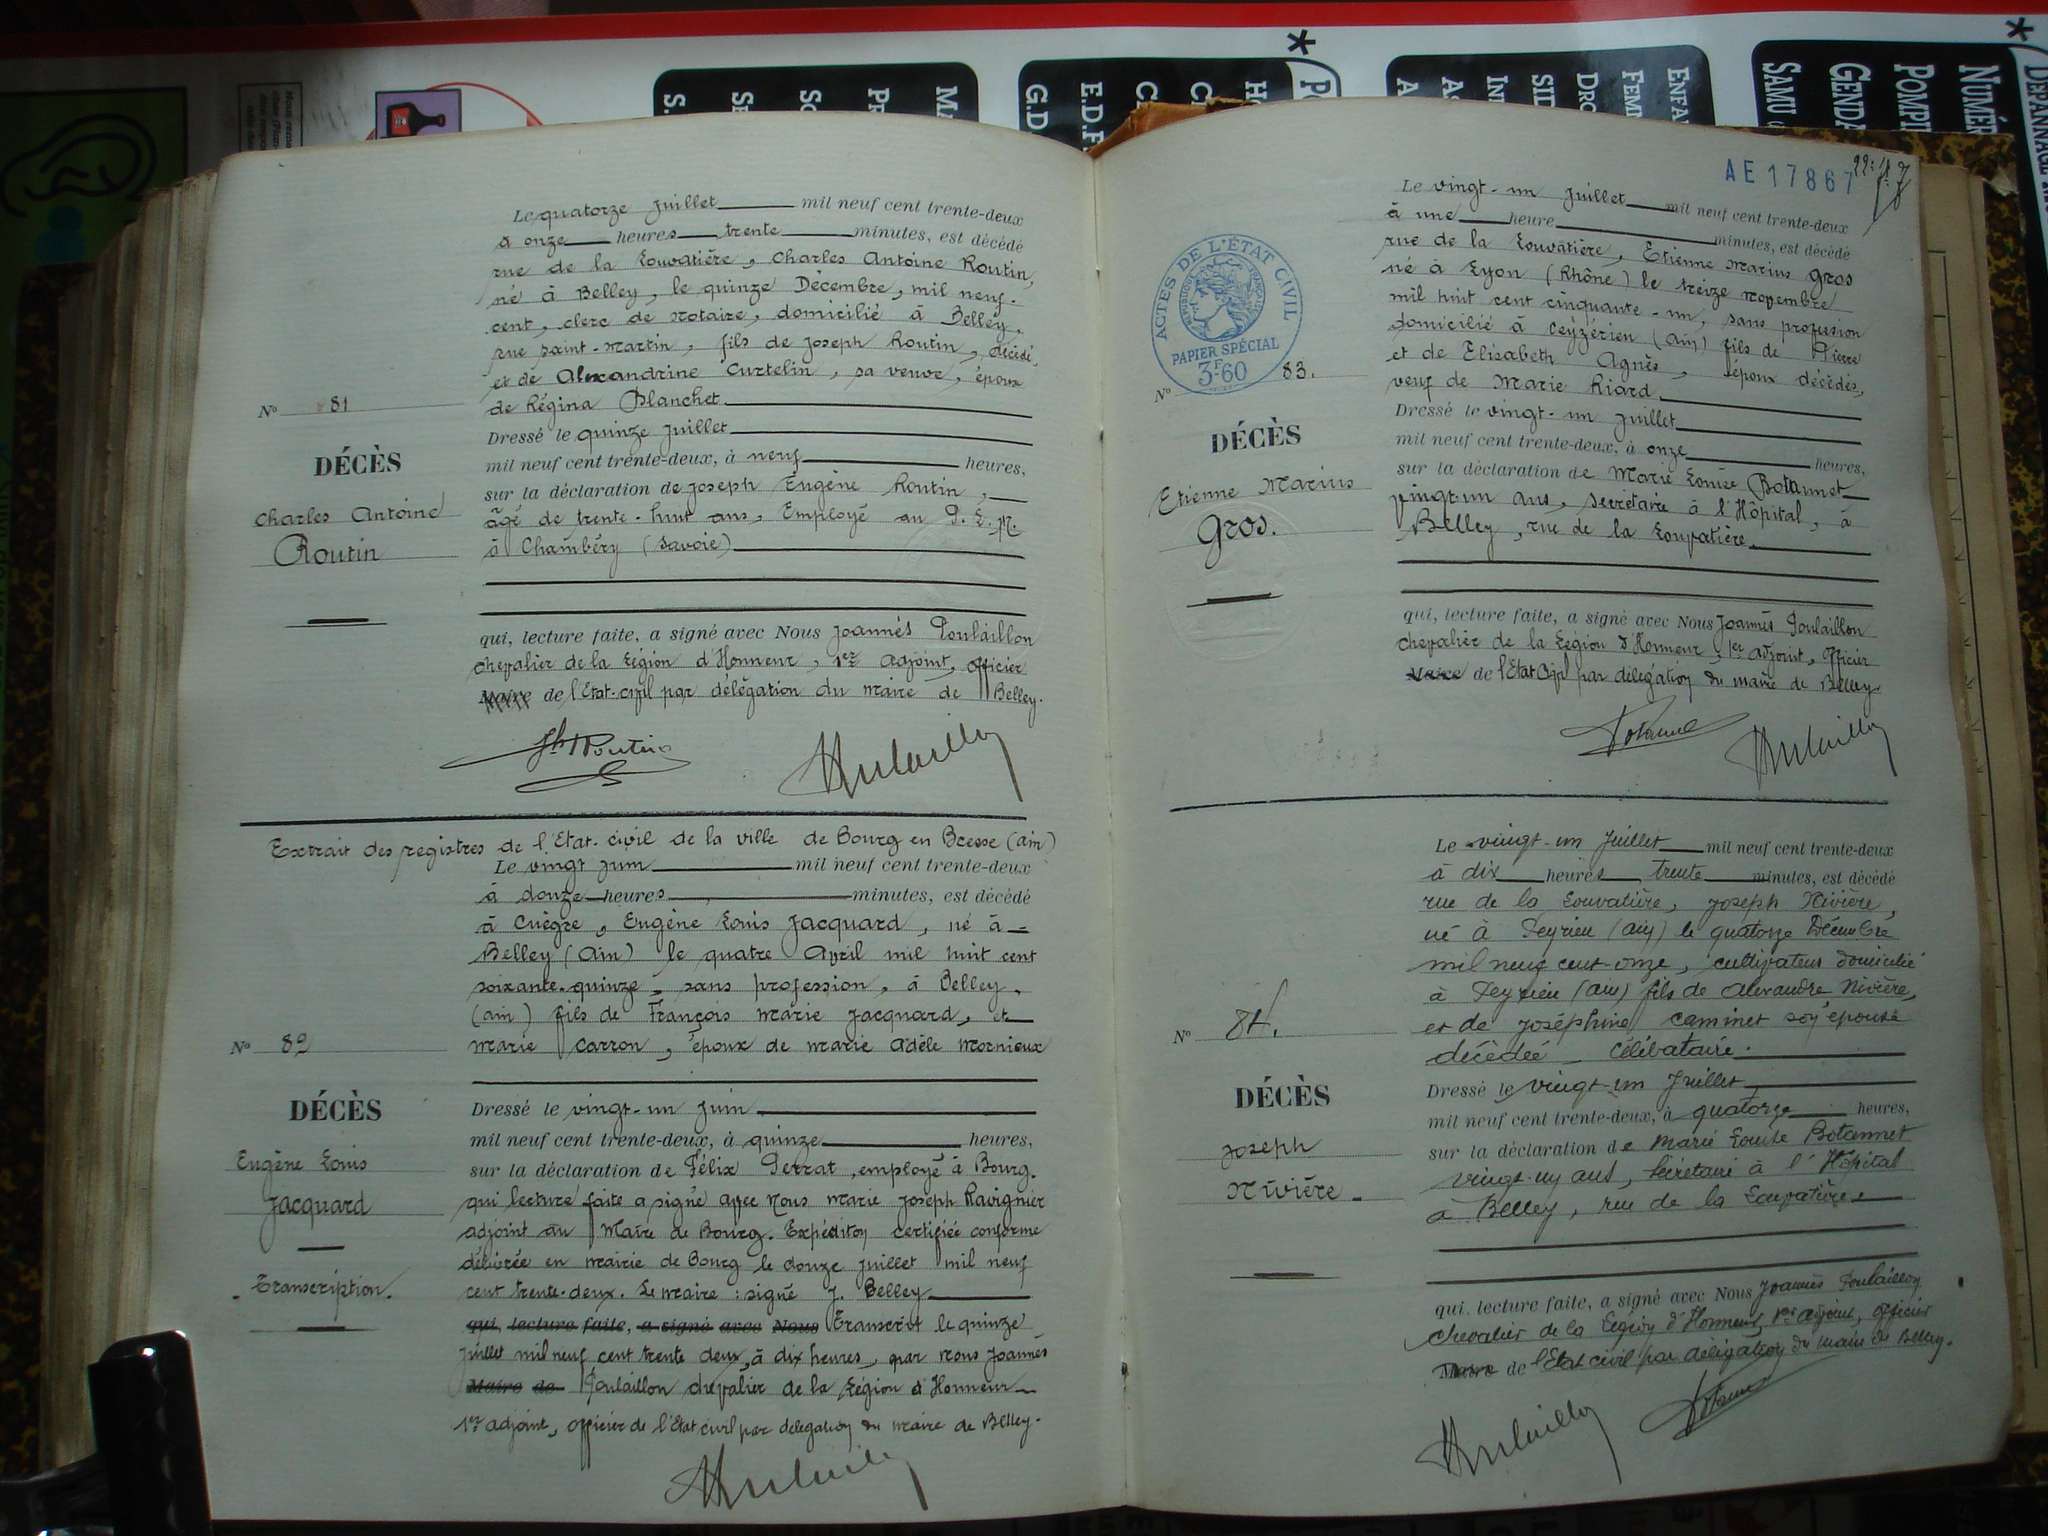 S.
Pr
Ma
G.D
E.D.F.
Po
*
Enfa
Femm
Dro
SID
In
*
Numér
Pompi
Genda
SAMU
Le quatorze Juillet mil neuf cent trente-deux
à onze heures trente minutes, est décédé
rue de la Louvatière, Charles Antoine Routin,
né à Belley, le quinze Décembre, mil neuf-
cent, clerc de notaire, domicilié à Belley,
rue Saint-Martin, fils de Joseph Routin, décédé,
et de Alexandrine Curtelin, sa veuve, époux
de Régina Blanchet
Dressé le quinze Juillet
mil neuf cent trente-deux, à neuf heures,
sur la déclaration de Joseph Eugène Routin,
âgé de trente-huit ans, Employé au P.L.M.
à Chambéry (Savoie)
qui, lecture faite, a signé avec Nous Joannès Poulaillon
chevalier de la Légion d'Honneur, 1er adjoint, officier
Maire de l'Etat-civil par délégation du maire de Belley.
N° 81
DÉCÈS
Charles Antoine
Routin
Extrait des registres de l'Etat-civil de la ville de Bourg en Bresse (ain)
Le vingt juin mil neuf cent trente-deux
à douze heures minutes, est décédé
à Cuègre, Eugène Louis Jacquard, né à
Belley (Ain) le quatre Avril mil huit cent
soixante-quinze, sans profession, à Belley,
(ain) fils de François Marie Jacquard, et
Marie Carron, époux de Marie Adèle Mornieux
Dressé le vingt-un juin
mil neuf cent trente-deux, à quinze heures,
sur la déclaration de Félix Perrat, employé à Bourg.
qui lecture faite a signé avec nous Marie Joseph Ravignier
adjoint au Maire de Bourg. Expédition certifiée conforme
délivrée en mairie de Bourg le douze juillet mil neuf
cent trente-deux. Le maire : signé J. Belley
qui, lecture faite, a signé avec Nous Transcrit le quinze
juillet mil neuf cent trente deux, à dix heures, par nous Joannès
Maire de Poulaillon chevalier de la Légion d'Honneur
1er adjoint, officier de l'Etat civil par délégation du maire de Belley.
N° 82
DÉCÈS
Eugène Louis
Jacquard
Transcription.
AE 17867
Le vingt-un Juillet mil neuf cent trente-deux
à une heure minutes, est décédé
rue de la Louvatière, Etienne Marius Gros
né à Lyon (Rhône) le treize novembre
mil huit cent cinquante-un, sans profession
domicilié à Ceyzérieu (Ain) fils de Pierre
et de Elisabeth Agnès, époux décédés,
veuf de Marie Riard.
Dressé le vingt-un Juillet
mil neuf cent trente-deux, à onze heures,
sur la déclaration de Marie Louise Botannet
vingt-un ans, secrétaire à l'Hôpital, à
Belley, rue de la Louvatière.
qui, lecture faite, a signé avec Nous Joannès Poulaillon
chevalier de la Légion d'Honneur, 1er adjoint, officier
Maire de l'Etat Civil par délégation du maire de Belley.
ACTES DE L'ÉTAT CIVIL
PAPIER SPÉCIAL
3F60
N° 83.
DÉCÈS
Etienne Marius
Gros.
Le vingt-un Juillet mil neuf cent trente-deux
à dix heures trente minutes, est décédé
rue de la Louvatière, Joseph Nivière,
né à Peyrieu (ain) le quatorze Décembre
mil neuf cent-onze, cultivateur domicilié
à Peyrieu (ain) fils de Alexandre Nivière,
et de Joséphine Caminet son épouse
décédée célibataire.
Dressé le vingt-un Juillet
mil neuf cent trente-deux, à quatorze heures,
sur la déclaration de Marie Louise Botannet
vingt-un ans, secrétaire à l'Hôpital
à Belley, rue de la Louvatière.
qui, lecture faite, a signé avec Nous Joannès Poulaillon
chevalier de la Légion d'Honneur, 1er adjoint, officier
Maire de l'Etat civil par délégation du maire de Belley.
N° 84.
DÉCÈS
Joseph
Nivière.